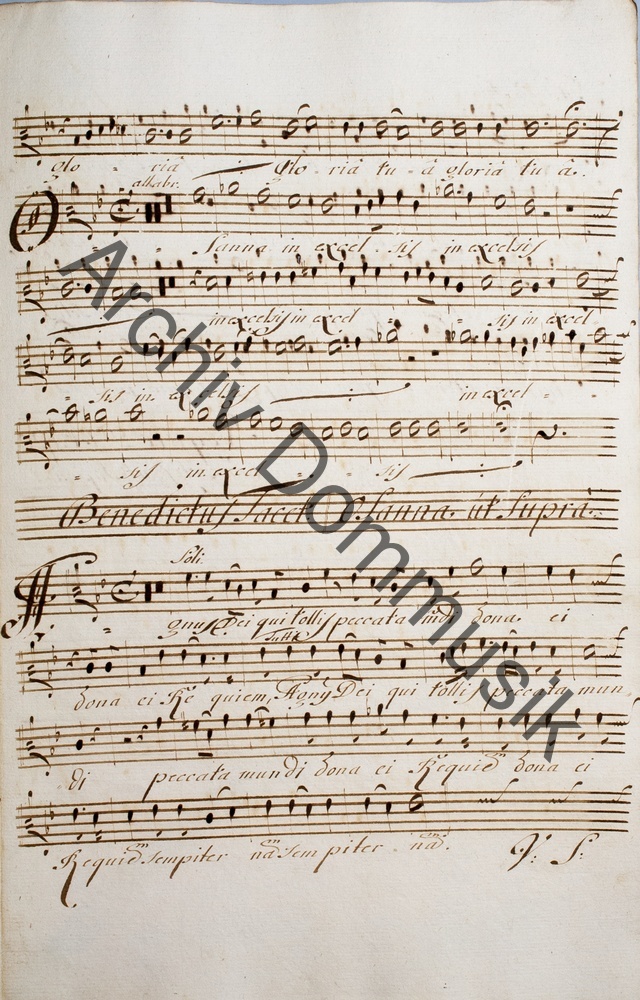 glo - ria glo ria tu - a gloria tu a.
allabr.
O - - Sanna in excel - sis in excelsis
in excelsis in excel - - sis in excel
- sis in excelsis in excel -
- sis in excel - sis
Benedictus tacet Osanna ut Supra
Soli
Agnus Dei qui tollis peccata mundi dona ei
Tutti
dona ei Re quiem, Agnus Dei qui tollis peccata mun
di peccata mundi dona ei Requiem dona ei
Requiem sempiter nam sem piter nam.
V: S:
Archiv Dommusik